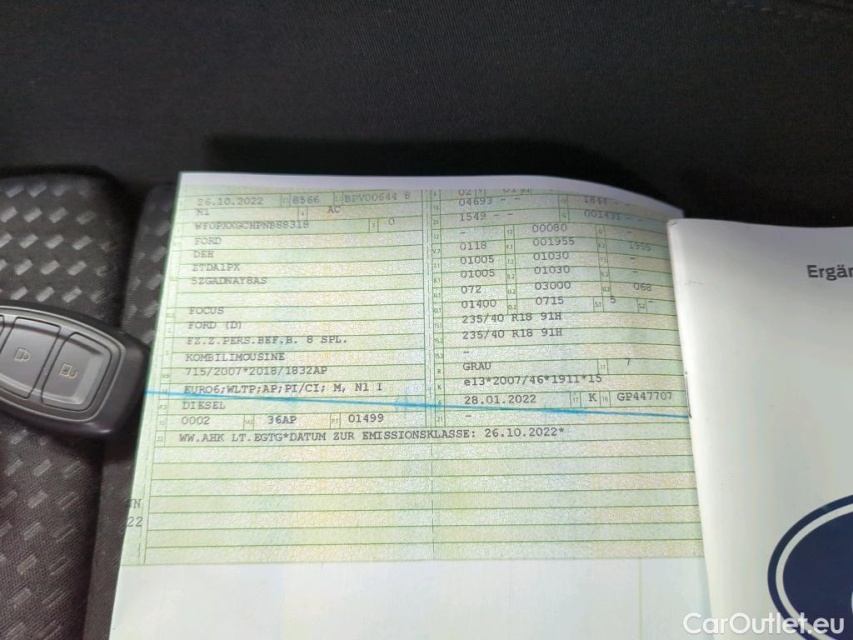 26.10.2022 8566 BPV00644 8
N1 AC
0
FORD
DEH
SZGADNAY8AS
FOCUS
FORD (D)
FZ.Z.PERS.BEF.B. 8 SPL.
KOMBILIMOUSINE
715/2007*2018/1832AP
EURO6;WLTP;AP;PI/CI; M, N1 I
DIESEL
0002 36AP 01499
WW.AHK LT.EGTG*DATUM ZUR EMISSIONSKLASSE: 26.10.2022*
04693 - -
1549 - -
- 00080
0118 001955 1955
01005 01030
01005 01030
072 03000 068
01400 0715 5 -
235/40 R18 91H
235/40 R18 91H
-
GRAU 7
e13*2007/46*1911*15
28.01.2022 K GP447707
-
22
Ergän
CarOutlet.eu